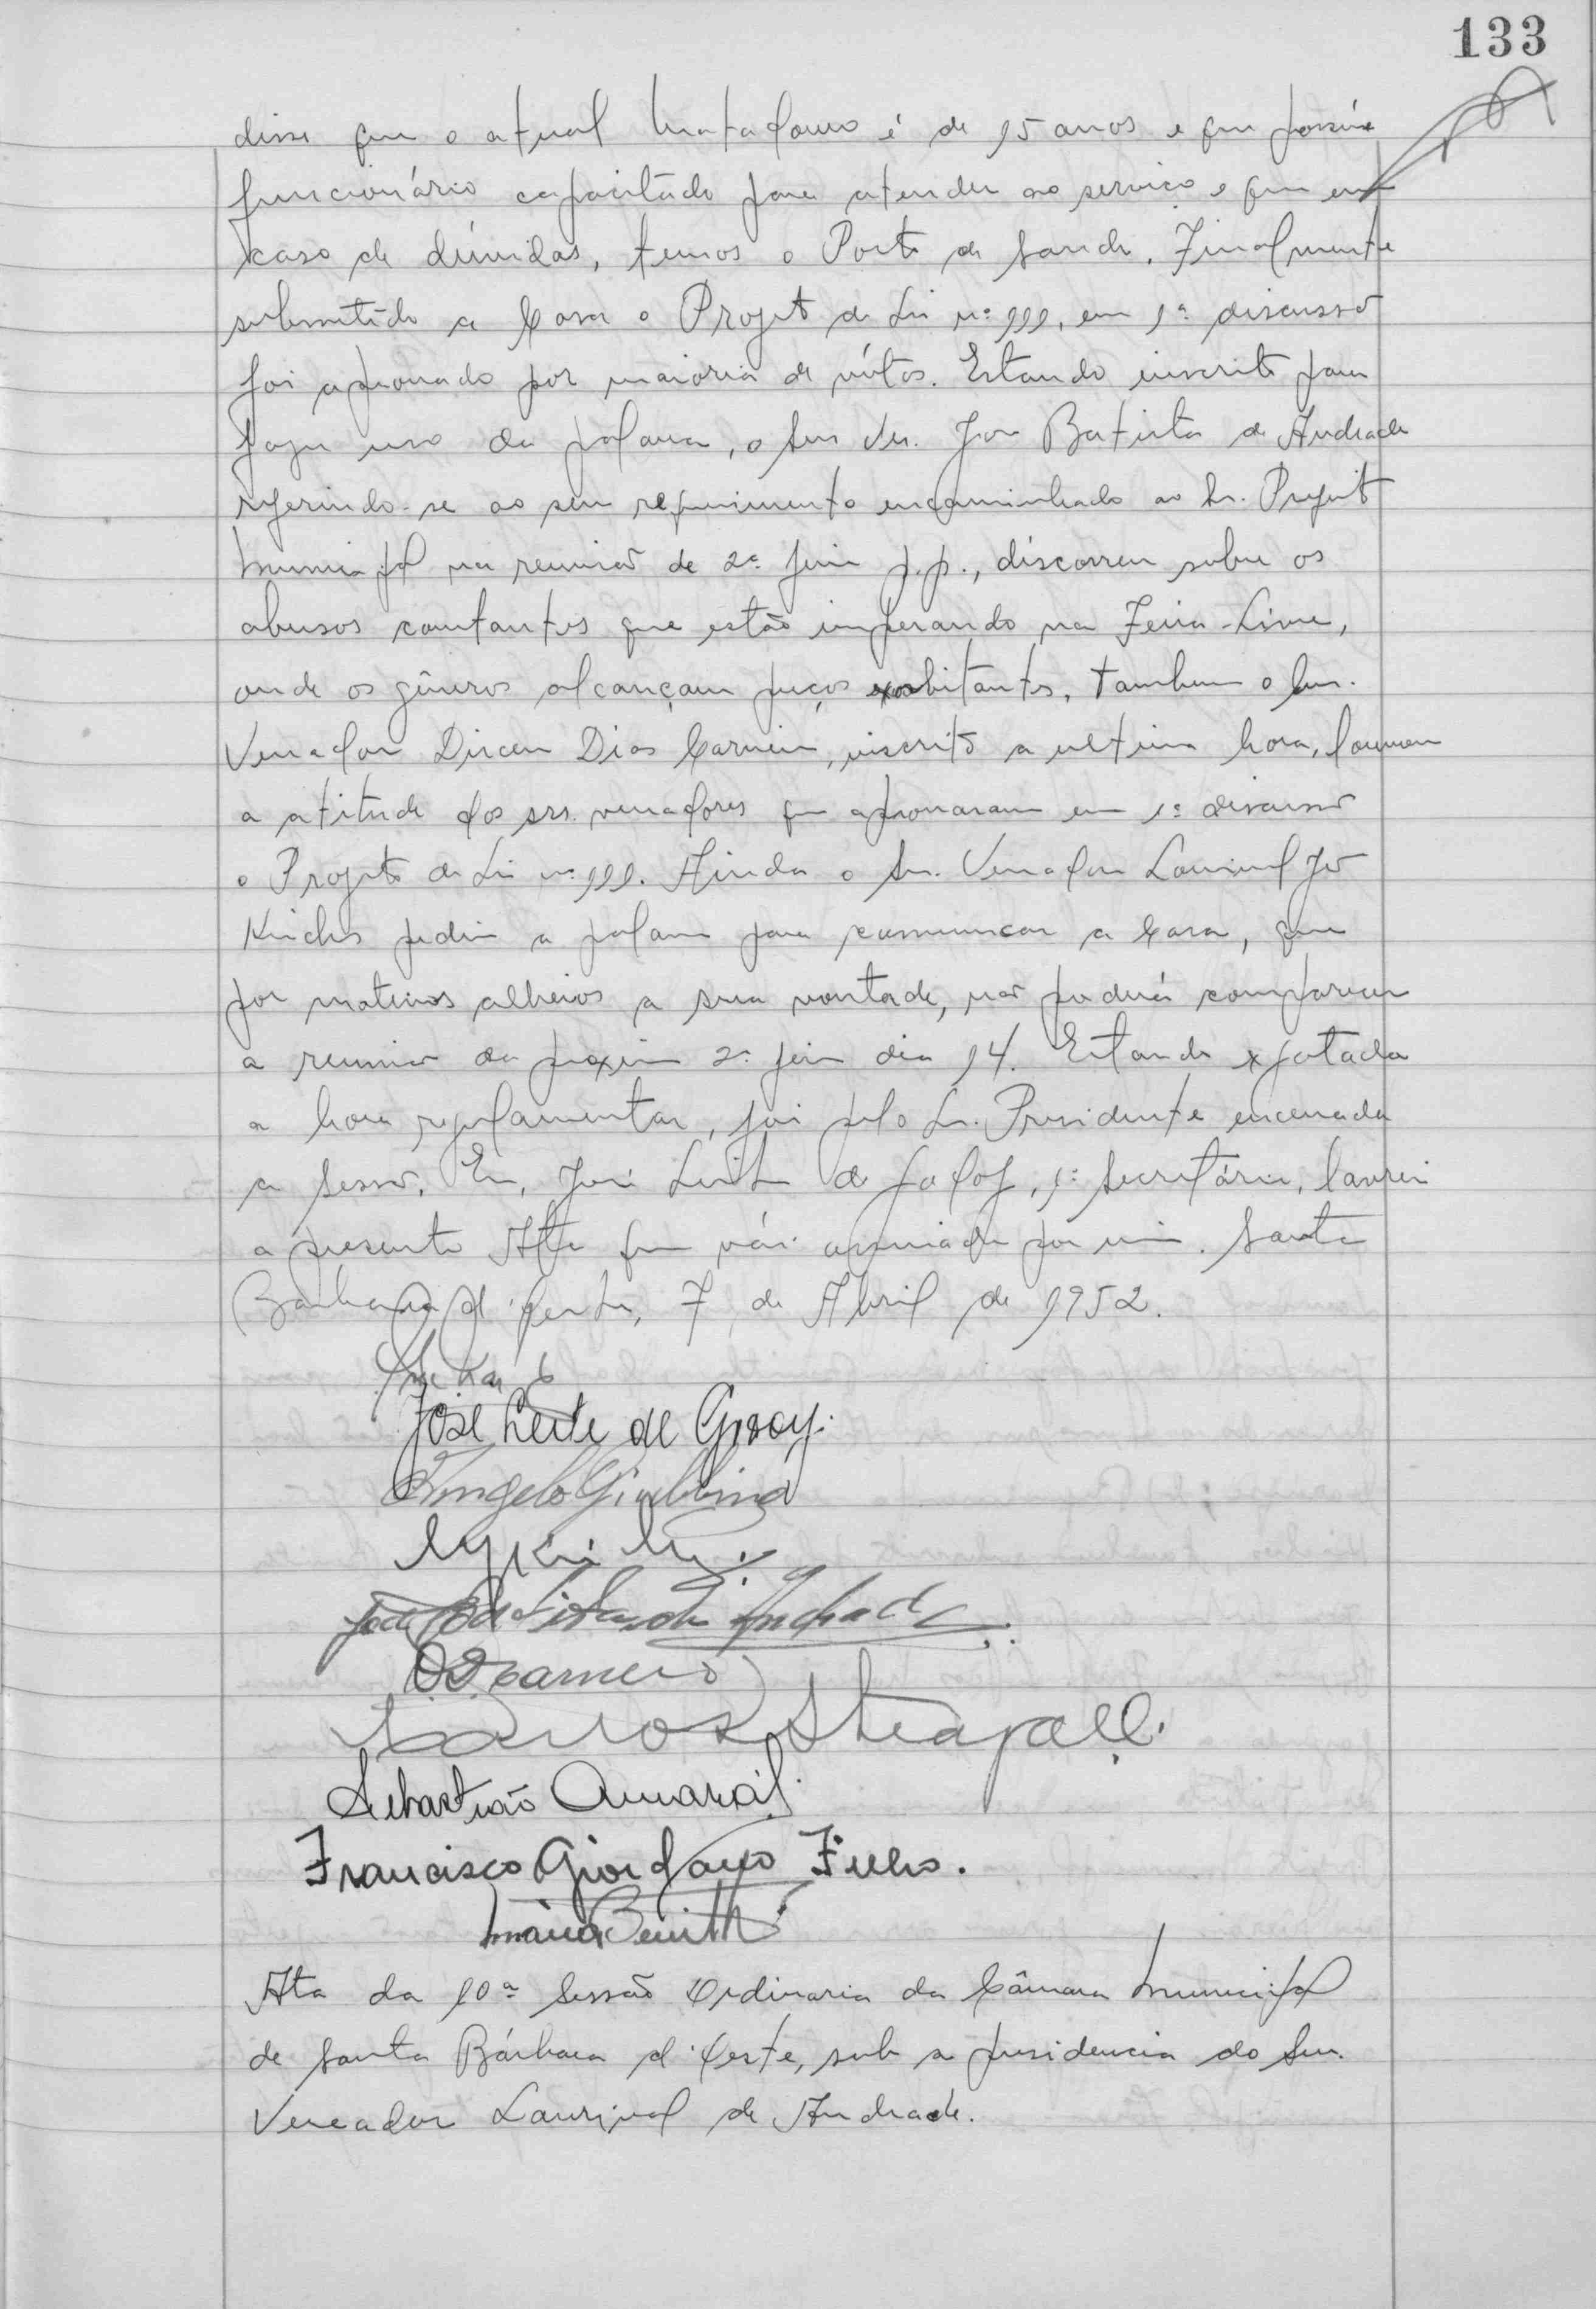 133
disse que o atual Matadouro é de 15 anos e que possúe
funcionário capacitado para atender ao serviço e que em
caso de dúvidas, temos o Posto de Saude. Finalmente
submetido a Casa o Projeto de Lei nº 111, em 1ª discussão
foi aprovado por maioria de vótos. Estando inscrito para
fazer uso da palavra, o Snr. Ver. João Batista de Andrade
referindo-se ao seu requerimento encaminhado ao Sr. Prefeito
Municipal na reunião de 2ª feira p.p., discorreu sobre os
abusos constantes que estão imperando na Feira-Livre,
onde os gêneros alcançam preços exorbitantes. Tambem o Snr.
Vereador Dirceu Dias Carneiro, inscrito a ultima hora, louvou
a atitude dos srs. vereadores que aprovaram em 1ª discussão
o Projeto de Lei nº 111. Ainda o Sr. Vereador
pediu a palavra para comunicar a Casa, que
por motivos alheios a sua vontade, não poderá comparecer
a reunião da proxima 2ª feira dia 14. Estando esgotada
a hora regulamentar, foi pelo Sr. Presidente encerrada
a Sessão. Eu, José Leite de Godoy, 1º Secretário, lavrei
a presente Ata que vái assinada por mim. Santa
Bárbara d'Oeste, 7 de Abril de 1952.
José Leite de Godoy.
Angelo Giubbina
João Batista de Andrade
D. D. Carneiro
Carlos Steagall.
Sebastião Amaral.
Francisco Giordano Filho.
Ata da 10ª Sessão Ordinaria da Câmara Municipal
de Santa Bárbara d'Oeste, sub a presidencia do Snr.
Vereador Laurival de Andrade.